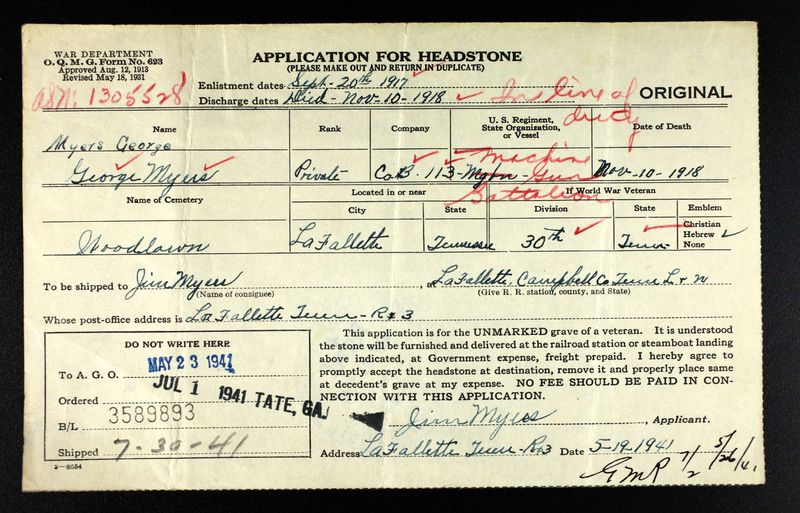 WAR DEPARTMENT
O. Q. M. G. Form No. 623
Approved Aug. 12, 1913
Revised May 18, 1931
ASN: 1305528
APPLICATION FOR HEADSTONE
(PLEASE MAKE OUT AND RETURN IN DUPLICATE)
Enlistment dates Sept- 20th 1917
Discharge dates Died - Nov-10-1918
In line of duty
ORIGINAL
Name Rank Company U. S. Regiment, State Organization, or Vessel Date of Death
Myers George
George Myers Private Co. B- 113- Machine Gun Battalion Nov-10-1918
Name of Cemetery Located in or near If World War Veteran
City State Division State Emblem
Woodlawn LaFallette Tennessee 30th Tenn
Christian
Hebrew
None
To be shipped to Jim Myers, at LaFallette, Campbell Co Tenn L & N
(Name of consignee) (Give R. R. station, county, and State)
Whose post-office address is La Fallette Tenn- R#3
DO NOT WRITE HERE
To A. G. O. MAY 23 1941
JUL 1 1941 TATE, GA.
Ordered
3589893
B/L
Shipped 7-30-41
2-8654
This application is for the UNMARKED grave of a veteran. It is understood
the stone will be furnished and delivered at the railroad station or steamboat landing
above indicated, at Government expense, freight prepaid. I hereby agree to
promptly accept the headstone at destination, remove it and properly place same
at decedent's grave at my expense. NO FEE SHOULD BE PAID IN CON-
NECTION WITH THIS APPLICATION.
Jim Myers, Applicant.
Address LaFallette Tenn- R#3 Date 5-19-1941
GMR 7/2 5/26/41.